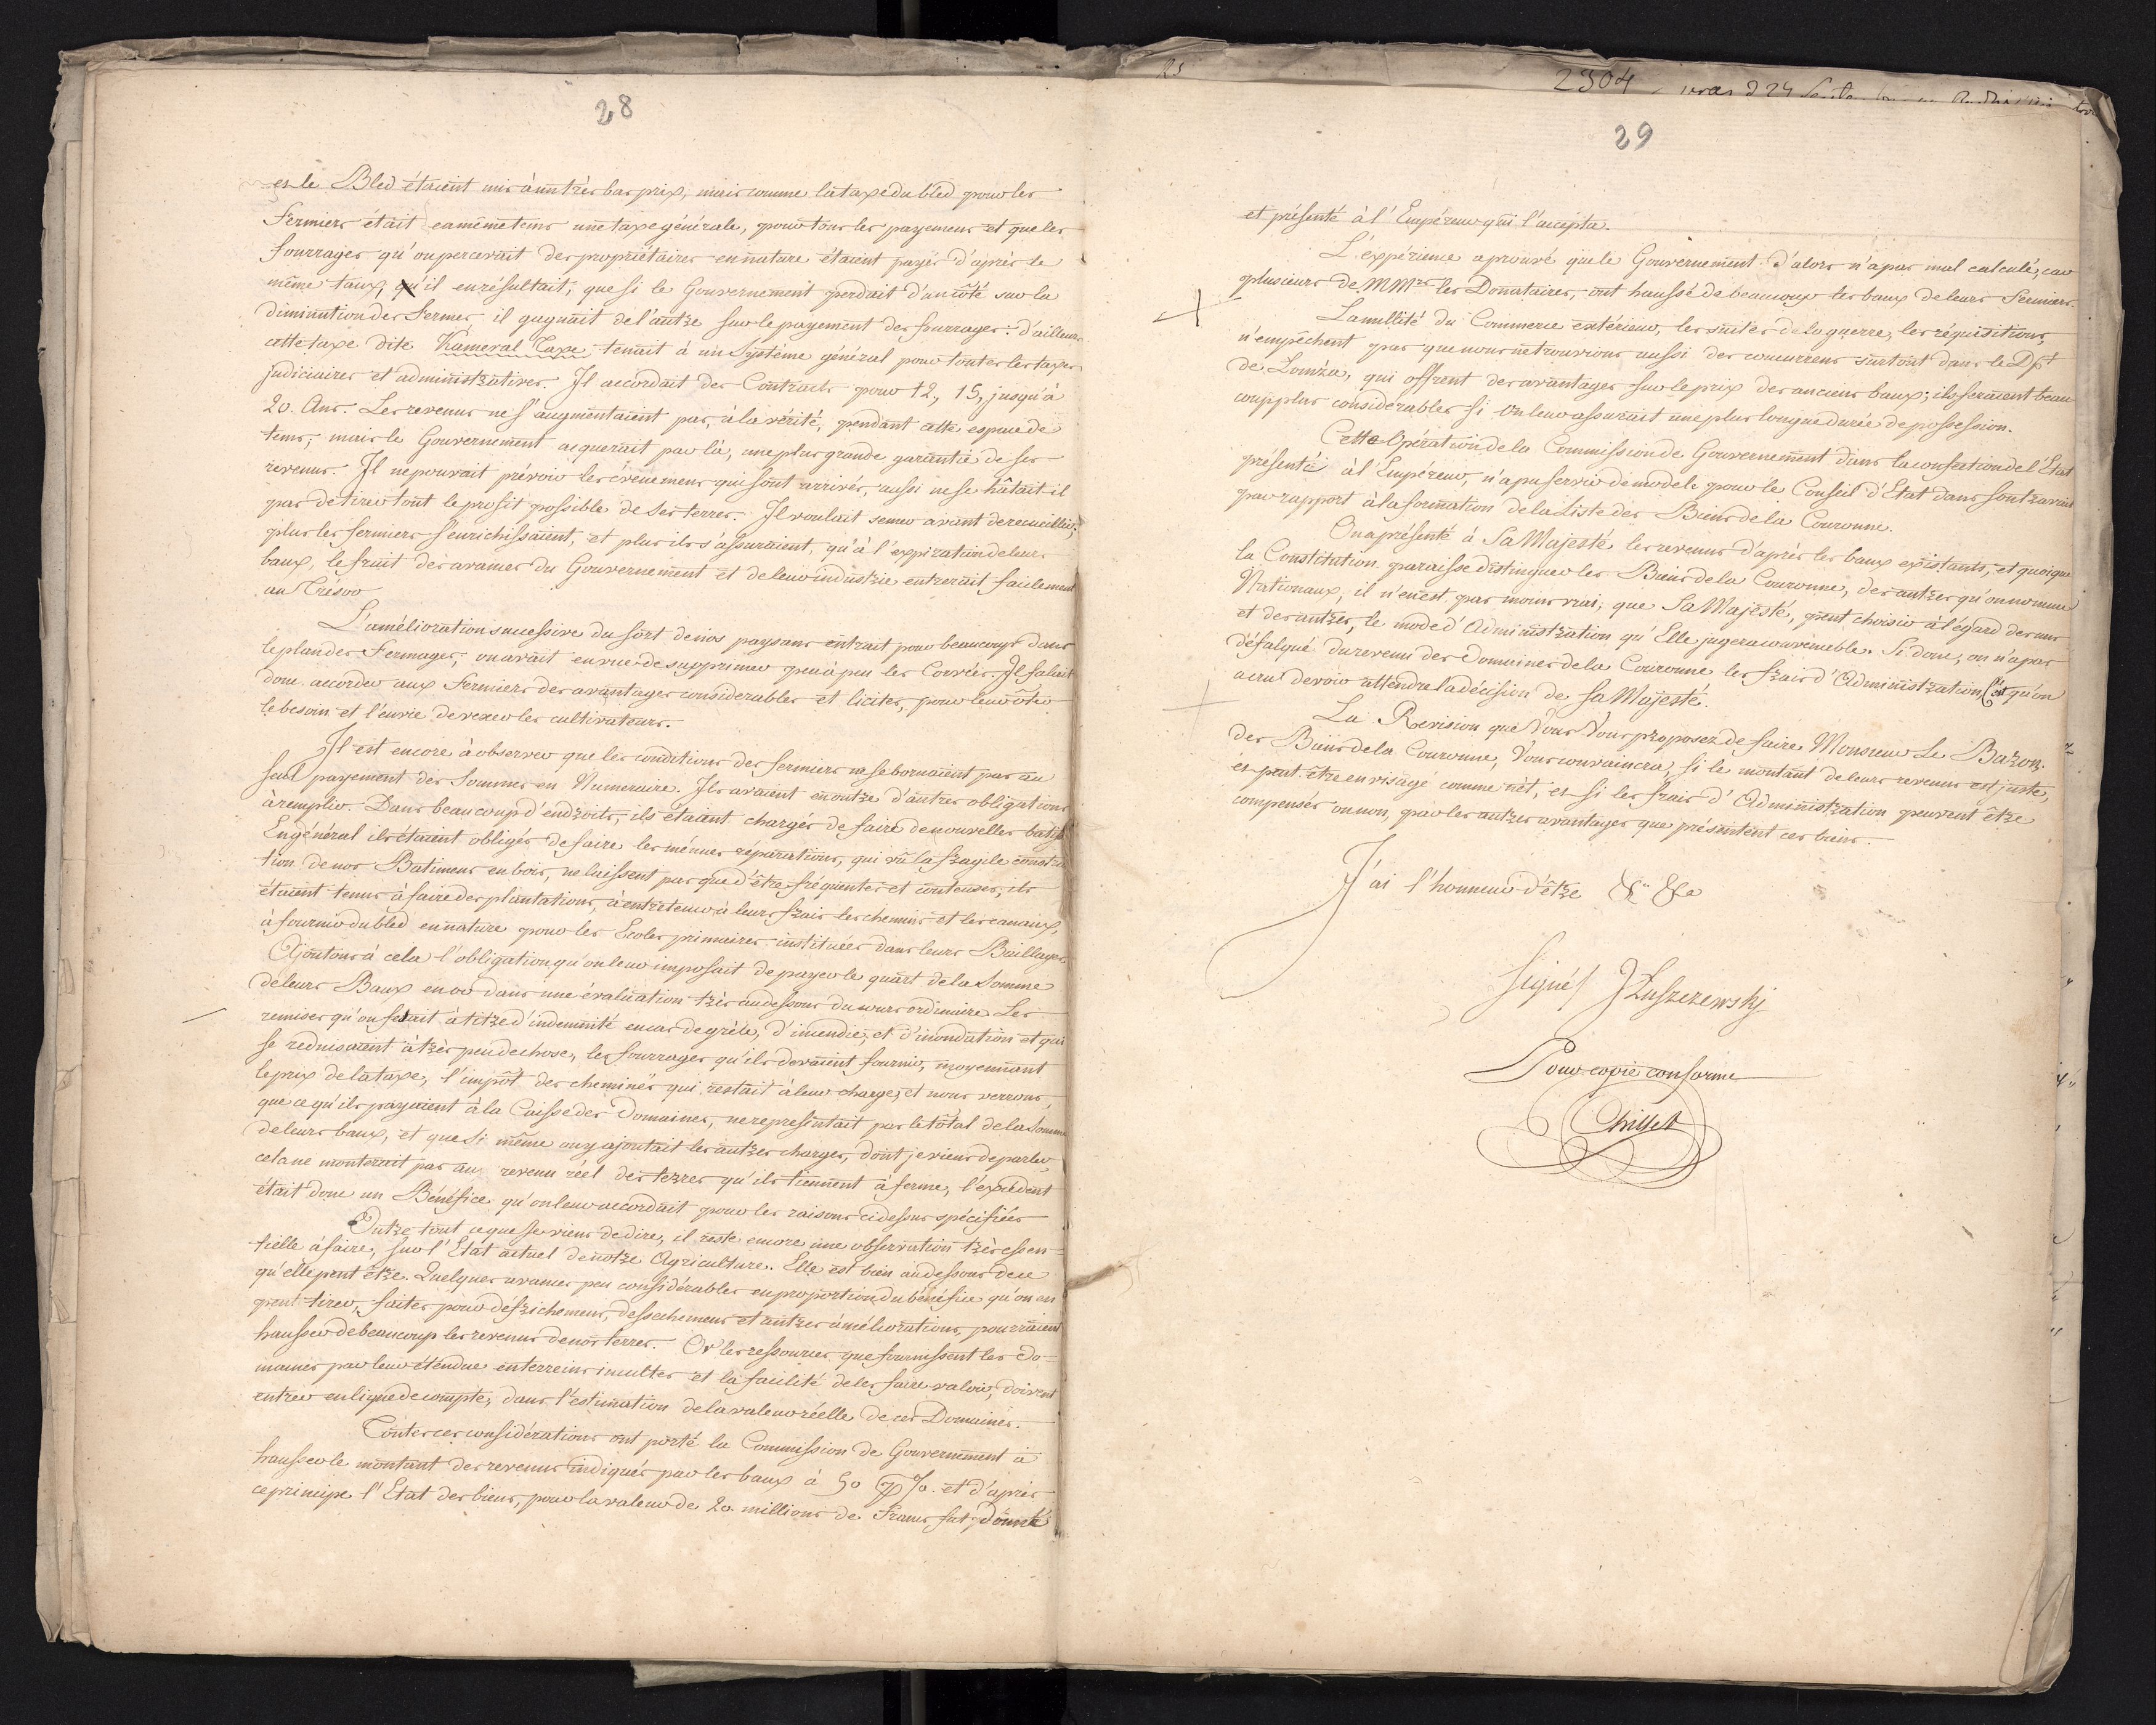 28
et le Bled étaient mis à un très bas prix; mais comme la taxe du bled pour les
Fermiers était en même tems une taxe générale, pour tous les payemens et que les
fourrages qu'on percevait des propriétaires en nature étaient payés d'après le
même taux, qu'il en résultait, que si le Gouvernement perdait d'un côté sur la
diminution des Fermes il gagnait de l'autre sur le payement des fourrages: d'ailleurs
cette taxe dite Kameral Taxe tenait à un Système général pour toutes les taxes
judiciaires et administratives. Il accordait des Contracts pour 12, 15, jusqu'à
20. Ans. Les revenus ne s'augmentaient pas, à la vérité, pendant cette espace de
tems; mais le Gouvernement acquerait par là, une plus grande garantie de ses
revenus. Il ne pouvait prévoir les évènemens qui sont arrivés, aussi ne se hâtait-il
pas de tirer tout le profit possible de ses terres. Il voulait semer avant de recueillir;
plus les fermiers s'enrichissaient, et plus ils s'assuraient, qu'à l'expiration de leurs
baux, le fruit des avances du Gouvernement et de leur industrie entrerait facilement
au Trésor
L'amélioration successive du sort de nos paysans entrait pour beaucoup dans
le plan des Fermages, on avait en vue de supprimer peu à peu les Corvées. Il falait
donc accorder aux Fermiers des avantages considerables et licites, pour leur ôter
le besoin et l'envie de vexer les cultivateurs.
Il est encore à observer que les conditions des fermiers ne se bornaient pas au
seul payement des Sommes en Numeraire. Ils avaient en outre d'autres obligations
à remplir. Dans beaucoup d'endroits, ils étaient chargés de faire de nouvelles batisses
En général ils étaient obligés de faire les mêmes réparations, qui vû la fragile construc
tion de nos Batimens en bois, ne laissent pas que d'être fréquentes et couteuses, ils
étaient tenus à faire des plantations, à entretenir à leurs frais les chemins et les canaux,
à fournir du bled en nature pour les Ecoles primaires instituées dans leurs Baillages
Ajoutons à cela l'obligation qu'on leur imposait de payer le quart de la Somme
de leurs Baux en or dans une évaluation très au dessous du cours ordinaire Les
remises qu'on faisait à titre d'indemnité en cas de grêle, d'incendie, et d'inondation et qui
se reduisaient à très peu de chose, les fourrages qu'ils devaient fournir, moyennant
le prix de la taxe, l'impôt des cheminées qui restait à leur charge, et nous verrons,
que ce qu'ils payaient à la Caisse des Domaines, ne representait pas le total de la Somme
de leurs baux, et que si même on y ajoutait les autres charges, dont je viens de parler,
cela ne monterait pas au revenu réel des terres qu'ils tiennent à ferme, l'excédent
était donc un Bénéfice qu'on leur accordait pour les raisons cidessus spécifiées
Outre tout ce que je viens de dire, il reste encore une observation très essen=
tielle à faire, sur l'Etat actuel de notre Agriculture. Elle est bien au dessous de ce
qu'elle peut être. Quelques avances peu considérables en proportion du bénéfice qu'on en
peut tirer, faites pour défrichemens, dessechemens et autres améliorations, pourraient
hausser de beaucoup les revenus de nos terres. Or les ressources que fournissent les Do=
maines par leur étendue en terreins incultes et la facilité de les faire valoir, doivent
entrer en ligne de compte, dans l'estimation de la valeur réelle de ces Domaines.
Toutes ces considérations ont porté la Commission de Gouvernement à
hausser le montant des revenus indiqués par les baux à 50 p% et d'après
ce principe l'Etat des biens, pour la valeur de 20 millions de Francs fut, donné
25
2304
29
et présenté à l'Empéreur qui l'accepta.
L'expérience a prouvé que le Gouvernement d'alors n'a pas mal calculé, car
plusieurs de MMrs les Donataires, ont haussé de beaucoup les baux de leurs Fermiers.
La nullité du Commerce extérieur, les suites de la guerre, les réquisitions,
n'empêchent pas que nous ne trouvions aussi des concurrens surtout dans le Dpt
de Lomza, qui offrent des avantages sur le prix des anciens baux; ils seraient beau
coup plus considerables si on leur assurait une plus longue durée de possession.
Cette Opération de la Commission de Gouvernement dans la confection de l'Etat
présenté à l'Empéreur, n'a pu servir de modele pour le Conseil d'Etat dans son travail
par rapport à la formation de la Liste des Biens de la Couronne.
On a présenté à Sa Majesté les revenus d'après les baux existants, et quoique
la Constitution paraisse distinguer les Biens de la Couronne, des autres qu'on nomme
Nationaux, il n'en est pas moins vrai, que Sa Majesté, peut choisir à l'égard des uns
et des autres, le mode d'Administration qu'Elle jugera convénable. Si donc, on n'a pas
défalqué du revenu des Domaines de la Couronne les frais d'Administration c'est qu'on
a cru devoir attendre la décision de sa Majesté.
La Revision que Vous Vous proposez de faire Monsieur Le Baron,
des Biens de la Couronne, Vous convaincra, si le montant de leurs revenus est juste,
et peut-être envisagé comme nèt, et si les frais d'Administration peuvent être
compensés ou non, par les autres avantages que présentent ces biens.
J'ai l'honneur d'être &a &a
signé/ J Luszczewskj
Pour copie conforme